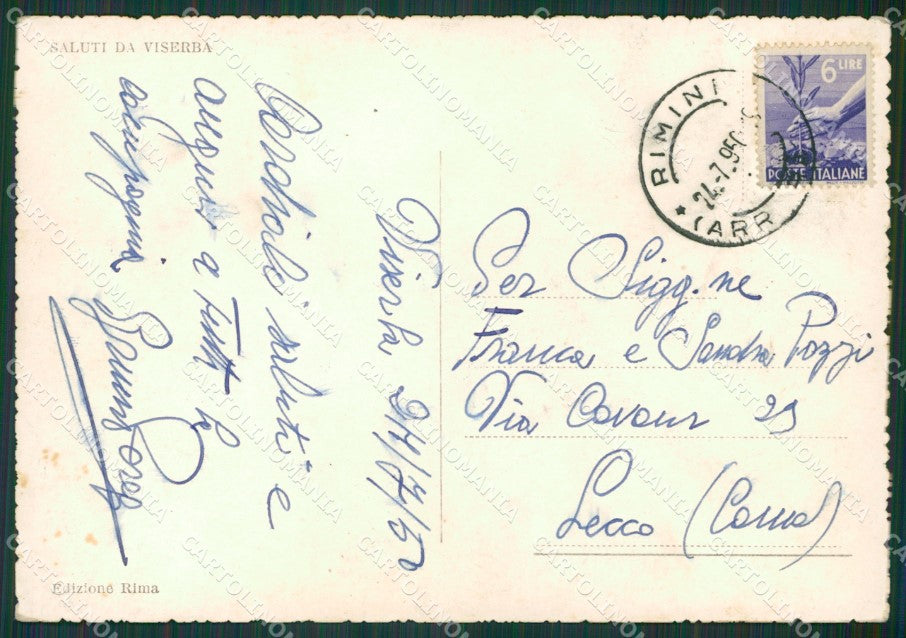 SALUTI DA VISERBA
Viserba 24/7/50
Cordiali saluti e
auguri a tutta la
compagnia
6 LIRE
POSTE ITALIANE
RIMINI
24.7.950
(ARR
Per Sigg.ne
Franca e Sandra Pozzi
Via Cavour 29
Lecco (Como)
Edizione Rima
CARTOLINOMANIA